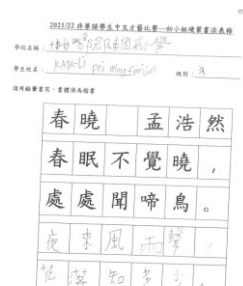 2021/22 非華語學生中文才藝比賽—初小組硬筆書法表格
學校名稱：
學生姓名：
級別：
請用鉛筆書寫，書體須為楷書
春曉　孟浩然
春眠不覺曉，
處處聞啼鳥。
夜來風雨聲，
花落知多少。